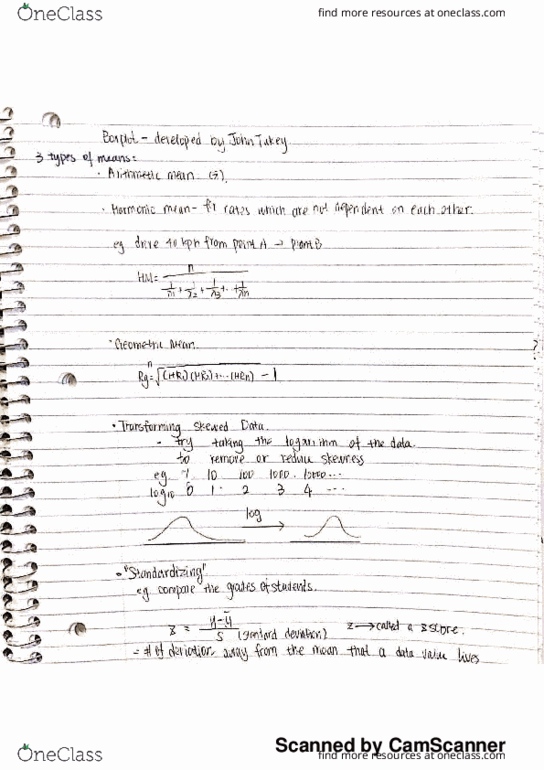 OneClass
find more resources at oneclass.com
Boxplot - developed by John Tukey
3 types of means:
· Arithmetic mean
· Harmonic mean - for rates which are not dependent on each other.
eg drive 40 kph from point A → point B
HM = n
1/x1 + 1/x2 + 1/x3 + .. + 1/xn
· Geometric Mean.
?
Rg = n√(HR1)(HR2)+...(HRn) - 1
· Transforming Skewed Data.
- try taking the logarithm of the data
to remove or reduce skewness
eg. 1 10 100 1000 10000 ...
log10 0 1 2 3 4 ...
log
· "Standardizing"
eg compare the grades of students.
z = y-ȳ
s (standard deviation) z → called a z score.
= # of deviations away from the mean that a data value lives
Scanned by CamScanner
OneClass
find more resources at oneclass.com